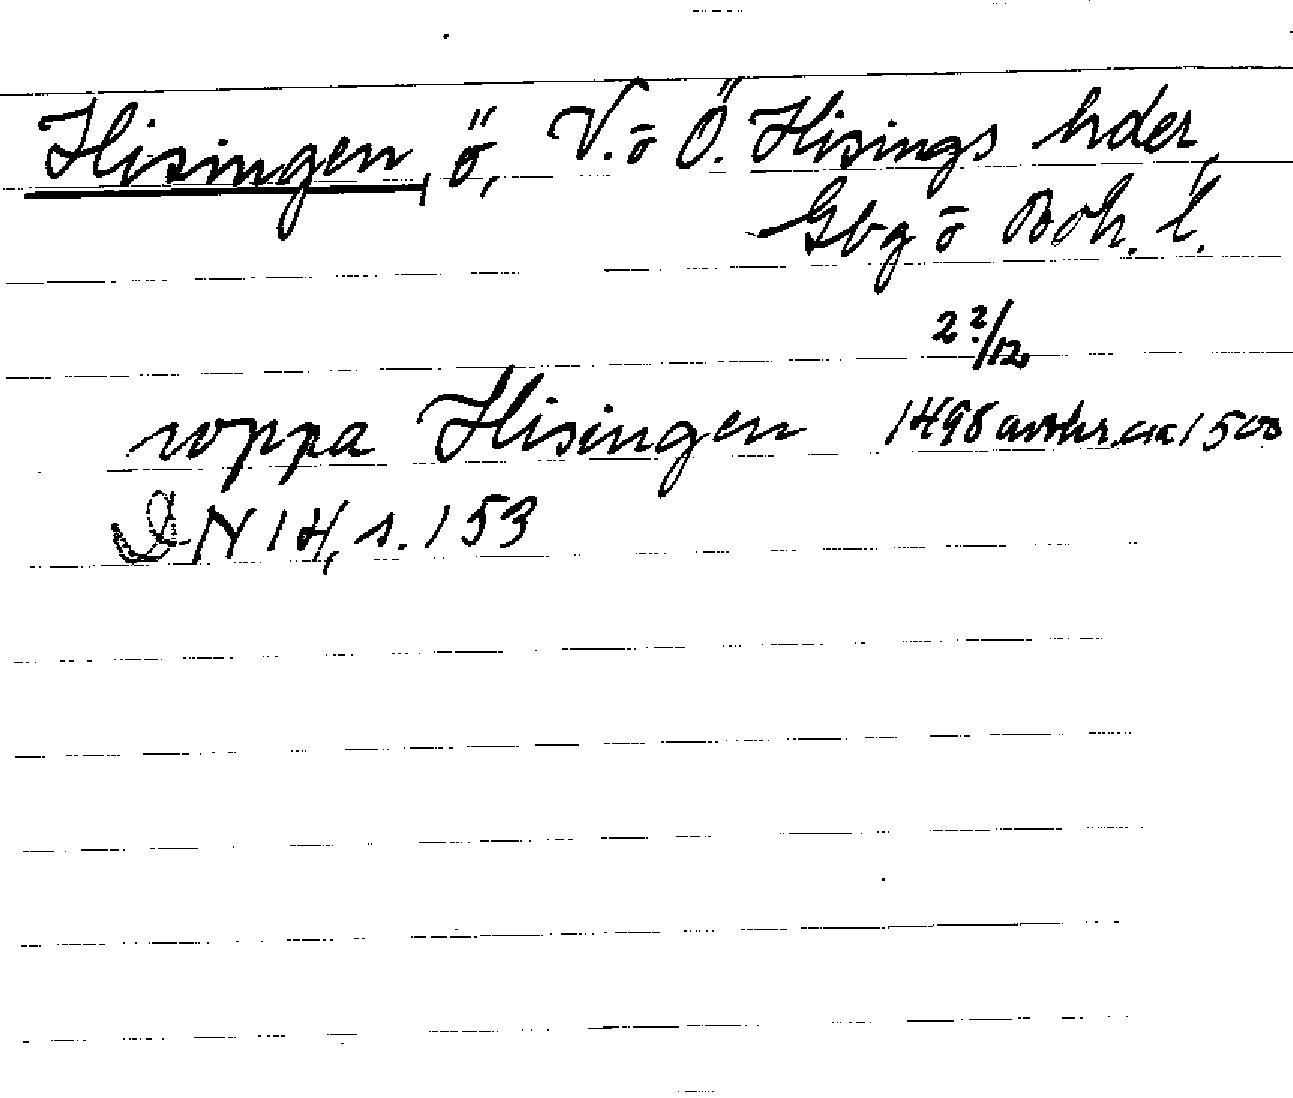 Hisingen, ö, V. ō Ö. Hisings hder,
Gbg ō Boh. l.
2?/12
uoppa Hisingen 1498 avskr. ca 1500
DN 14, s. 153